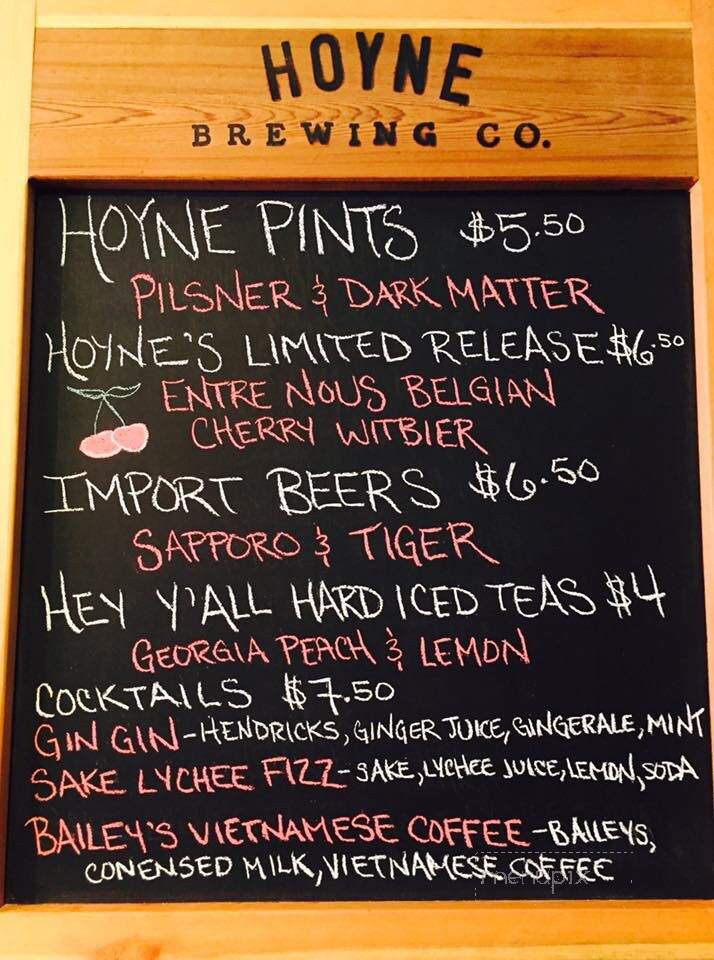 HOYNE
BREWING CO.
HOYNE PINTS $5.50
PILSNER & DARK MATTER
HOYNE'S LIMITED RELEASE $6.50
ENTRE NOUS BELGIAN
CHERRY WITBIER
IMPORT BEERS $6.50
SAPPORO & TIGER
HEY Y'ALL HARD ICED TEAS $4
GEORGIA PEACH & LEMON
COCKTAILS $7.50
GIN GIN-HENDRICKS, GINGER JUICE, GINGERALE, MINT
SAKE LYCHEE FIZZ-SAKE, LYCHEE JUICE, LEMON, SODA
BAILEY'S VIETNAMESE COFFEE-BAILEYS,
CONENSED MILK, VIETNAMESE COFFEE
menupix